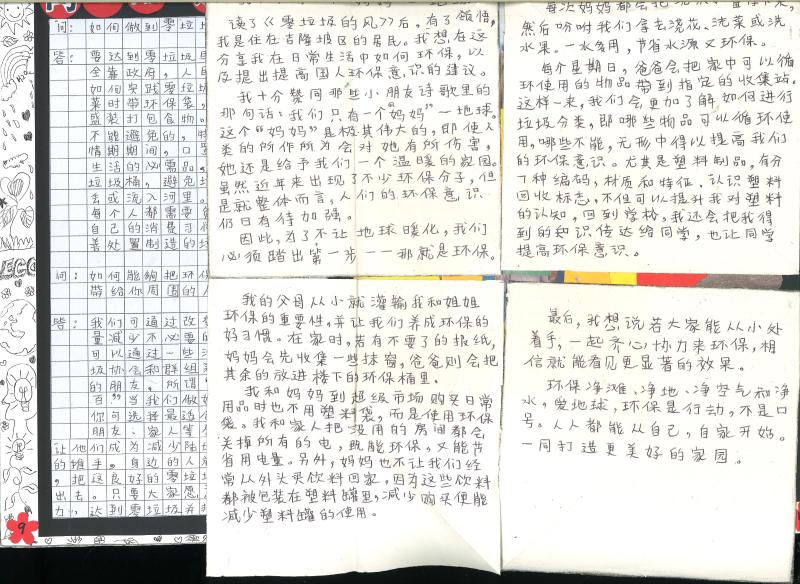 问：如何做到零垃圾
答：要达到零垃圾
全靠政府，人
如何实践零垃圾
菜时带环保袋，
盛装打包食物。
不能避免的，
情期期间，口
生活的必需品，
垃圾桶，避免
去或流入河里。
每个人都需要
自己的消费习
善处置制造的垃
问：如何能够把环保
带给你周围的人
答：我们可通过改
量减少不必要
可以通过一些
圾协会和群组
的朋友。所谓
百”当我们做
你可选择最适合
朋友、家人等
让他们成为减少
的推手。身边的人
，把这良好的零垃圾
出去。只要大家愿
力，达到零垃圾并
9
读了《零垃圾的风》后，有了领悟，
我是住在吉隆坡区的居民。我想在这
分享我在日常生活中如何环保，以
及提出提高国人环保意识的建议。
我十分赞同那些小朋友诗歌里的
那句话：我们只有一个“妈妈”—地球。
这个“妈妈”是极其伟大的，即使人
类的所作所为会对她有所伤害，
她还是给予我们一个温暖的家园。
虽然近年来出现了不少环保分子，但
是就整体而言，人们的环保意识
仍日有待加强。
因此，为了不让地球暖化，我们
必须踏出第一步——那就是环保。
每次妈妈都会把洗
然后吩咐我们拿去浇花、洗菜或洗
水果。一水多用，节省水源又环保。
每个星期日，爸爸会把家中可以循
环使用的物品带到指定的收集站。
这样一来，我们会更加了解如何进行
垃圾分类，即哪些物品可以循环使
用，哪些不能，无形中得以提高我们
的环保意识。尤其是塑料制品，有分
7种编码，材质和特征。认识塑料
回收标志，不但可以提升我对塑料
的认知，回到学校，我还会把我得
到的知识传达给同学，也让同学
提高环保意识。
我的父母从小就灌输我和姐姐
环保的重要性，并让我们养成环保的
好习惯。在家时，若有不要了的报纸，
妈妈会先收集一些抹窗，爸爸则会把
其余的放进楼下的环保桶里。
我和妈妈到超级市场购买日常
用品时也不用塑料袋，而是使用环保
袋。我和家人把没用的房间都会
关掉所有的电，既能环保，又能节
省用电量。另外，妈妈也不让我们经
常从外头买饮料回家，因为这些饮料
都被包装在塑料罐里，减少购买便能
减少塑料罐的使用。
最后，我想说若大家能从小处
着手，一起齐心协力来环保，相
信就能看见更显著的效果。
环保净滩、净地、净空气和净
水。爱地球，环保是行动，不是口
号。人人都能从自己，自家开始。
一同打造更美好的家园。